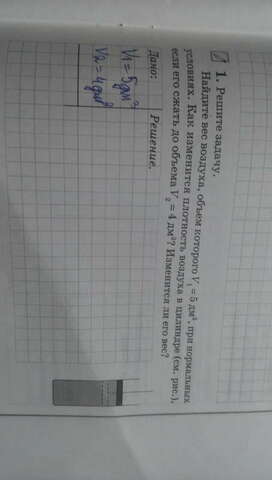 1. Решите задачу.
Найдите вес воздуха, объем которого V₁ = 5 дм³, при нормальных
условиях. Как изменится плотность воздуха в цилиндре (см. рис.),
если его сжать до объема V₂ = 4 дм³? Изменится ли его вес?
Дано:
Решение.
V1 = 5дм³
V2 = 4дм³